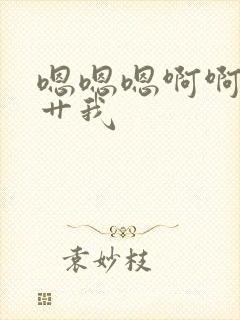 嗯嗯嗯啊啊
艹我
袁妙枝